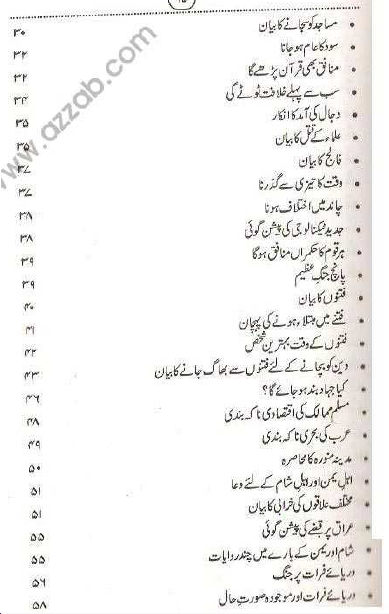 • مساجد کو سجانے کا بیان ۳۰
• سود کا عام ہو جانا ۳۲
• منافق بھی قرآن پڑھے گا ۳۲
• سب سے پہلے خلافت ٹوٹے گی ۳۴
• دجال کی آمد کا انکار ۳۵
• علماء کے قتل کا بیان ۳۵
• فالج کا بیان ۳۷
• وقت کا تیزی سے گذرنا ۳۷
• چاند میں اختلاف ہونا ۳۸
• جدید ٹیکنالوجی کی پیشن گوئی ۳۸
• ہر قوم کا حکمراں منافق ہوگا ۳۹
• پانچ جنگ عظیم ۳۹
• فتنوں کا بیان ۴۰
• فتنے میں مبتلاء ہونے کی پہچان ۴۱
• فتنوں کے وقت بہترین شخص ۴۲
• دین کو بچانے کے لئے فتنوں سے بھاگ جانے کا بیان ۴۳
• کیا جہاد بند ہو جائے گا؟ ۴۶
• مسلم ممالک کی اقتصادی ناکہ بندی ۴۸
• عرب کی بحری ناکہ بندی ۴۹
• مدینہ منورہ کا محاصرہ ۵۰
• اہل یمن اور اہل شام کے لئے دعا ۵۱
• مختلف علاقوں کی خرابی کا بیان ۵۱
• عراق پر قبضے کی پیشن گوئی ۵۵
• شام اور یمن کے بارے میں چند روایات ۵۵
• دریائے فرات پر جنگ ۵۶
• دریائے فرات اور موجودہ صورت حال ۵۸
www.azzab.com